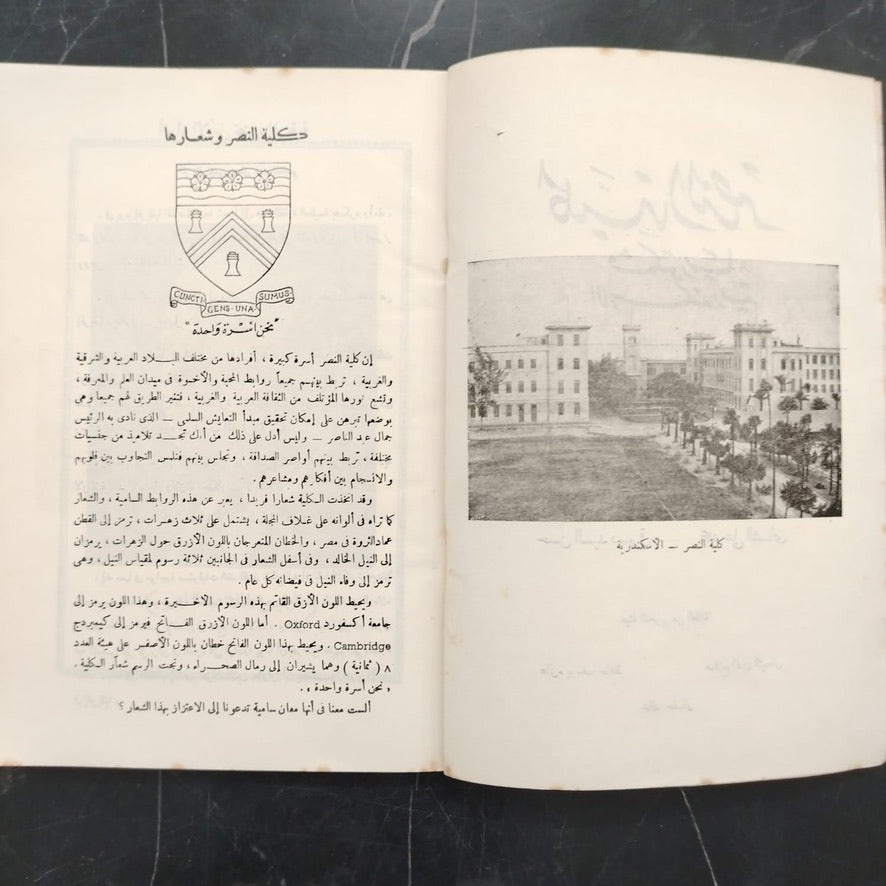 كلية النصر وشعارها
CUNCTI· GENS·UNA SUMUS·
"نحن اسرة واحدة"
إن كلية النصر أسرة كبيرة ، أفرادها من مختلف البلاد العربية والشرقية
والغربية ، تربط بينهم جميعاً روابط المحبة والأخوة في ميدان العلم والمعرفة ،
وتشع نورها المؤتلف من الثقافة العربية والغربية ، فتنير الطريق لهم جميعا وهى
بوضعها تبرهن على إمكان تحقيق مبدأ التعايش السلمى — الذى نادى به الرئيس
جمال عبد الناصر — وليس أدل على ذلك من أنك تجد تلاميذ من جنسيات
مختلفة ، تربط بينهم أواصر الصداقة ، وتجلس بينهم فتلمس التجاوب بين قلوبهم
والانسجام بين أفكارهم ومشاعرهم .
وقد اتخذت الكلية شعارا فريدا ، يعبر عن هذه الروابط السامية ، والشعار
كما تراه فى ألوانه على غلاف المجلة ، يشتمل على ثلاث زهرات ، ترمز إلى القطن
عماد الثروة فى مصر ، والخطان المتعرجان باللون الأزرق حول الزهرات ، يرمزان
إلى النيل الخالد ، وفى أسفل الشعار فى الجانبين ثلاثة رسوم لمقياس النيل ، وهى
ترمز إلى وفاء النيل فى فيضانه كل عام .
ويحيط اللون الأزق القاتم بهذه الرسوم الأخيرة ، وهذا اللون يرمز إلى
جامعة أكسفورد Oxford . أما اللون الأزرق الفاتح فيرمز إلى كيمبردج
Cambridge . ويحيط بهذا اللون الفاتح خطان باللون الأصفر على هيئة العدد
٨ ( ثمانية ) وهما يشيران إلى رمال الصحراء ، وتحت الرسم شعار الكلية .
« نحن أسرة واحدة » .
ألست معنا فى أنها معان سامية تدعونا إلى الاعتزاز بهذا الشعار ؟
كلية النصر — الاسكندرية